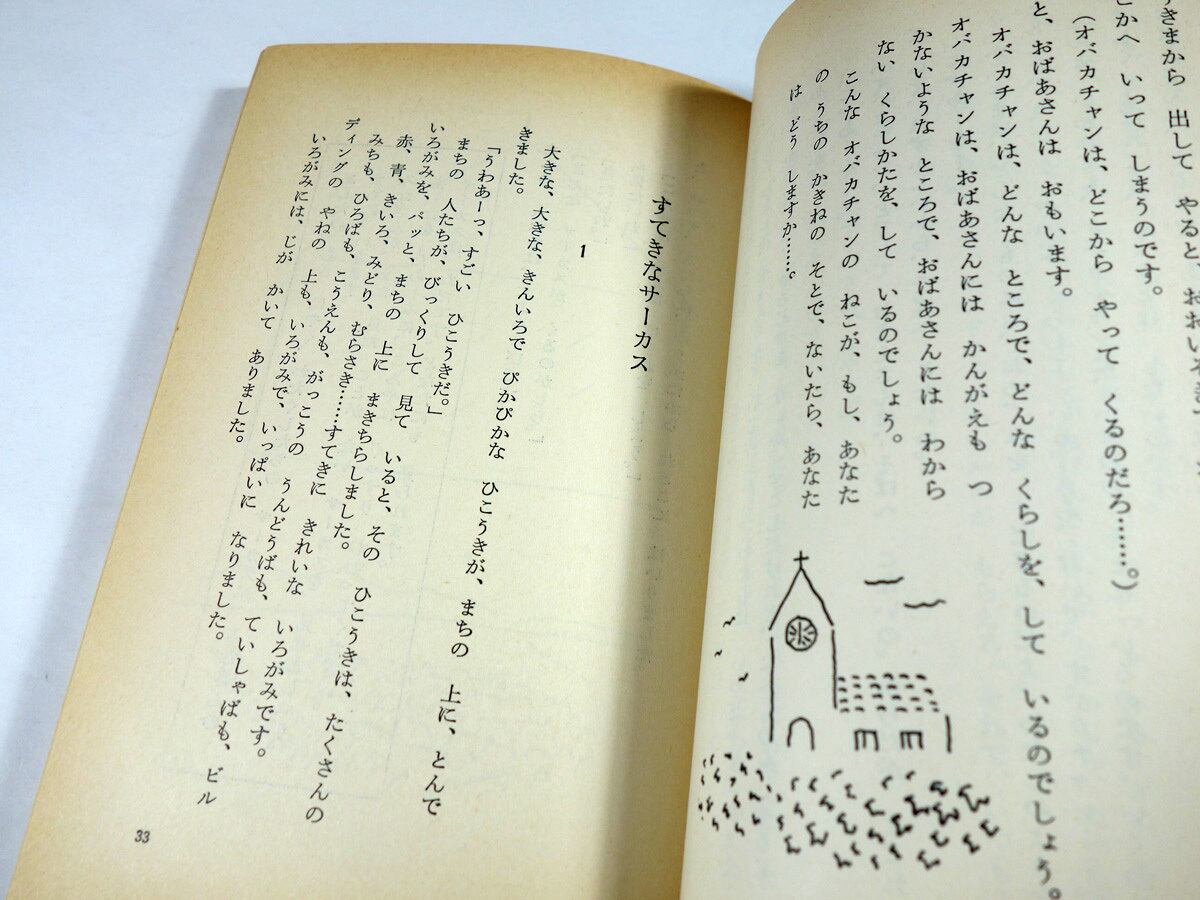 すきまから　出して　やると、おおいそぎ
こかへ　いって　しまうのです。
（オバカチャンは、どこから　やって　くるのだろ……。）
と、おばあさんは　おもいます。
オバカチャンは、どんな　ところで、どんな　くらしを、して　いるのでしょう。
オバカチャンは、おばあさんには　かんがえも　つ
かないような　ところで、おばあさんには　わから
ない　くらしかたを、して　いるのでしょう。
こんな　オバカチャンの　ねこが、もし、あなた
の　うちの　かきねの　そとで、ないたら、あなた
は　どう　しますか……。
すてきなサーカス
1
大きな、大きな、きんいろで　ぴかぴかな　ひこうきが、まちの　上に、とんで
きました。
「うわあーっ、すごい　ひこうきだ。」
まちの　人たちが、びっくりして　見て　いると、その　ひこうきは、たくさんの
いろがみを、パッと、まちの　上に　まきちらしました。
赤、青、きいろ、みどり、むらさき……すてきに　きれいな　いろがみです。
みちも、ひろばも、こうえんも、がっこうの　うんどうばも、ていしゃばも、ビル
ディングの　やねの　上も、いろがみで、いっぱいに　なりました。
いろがみには、じが　かいて　ありました。
33